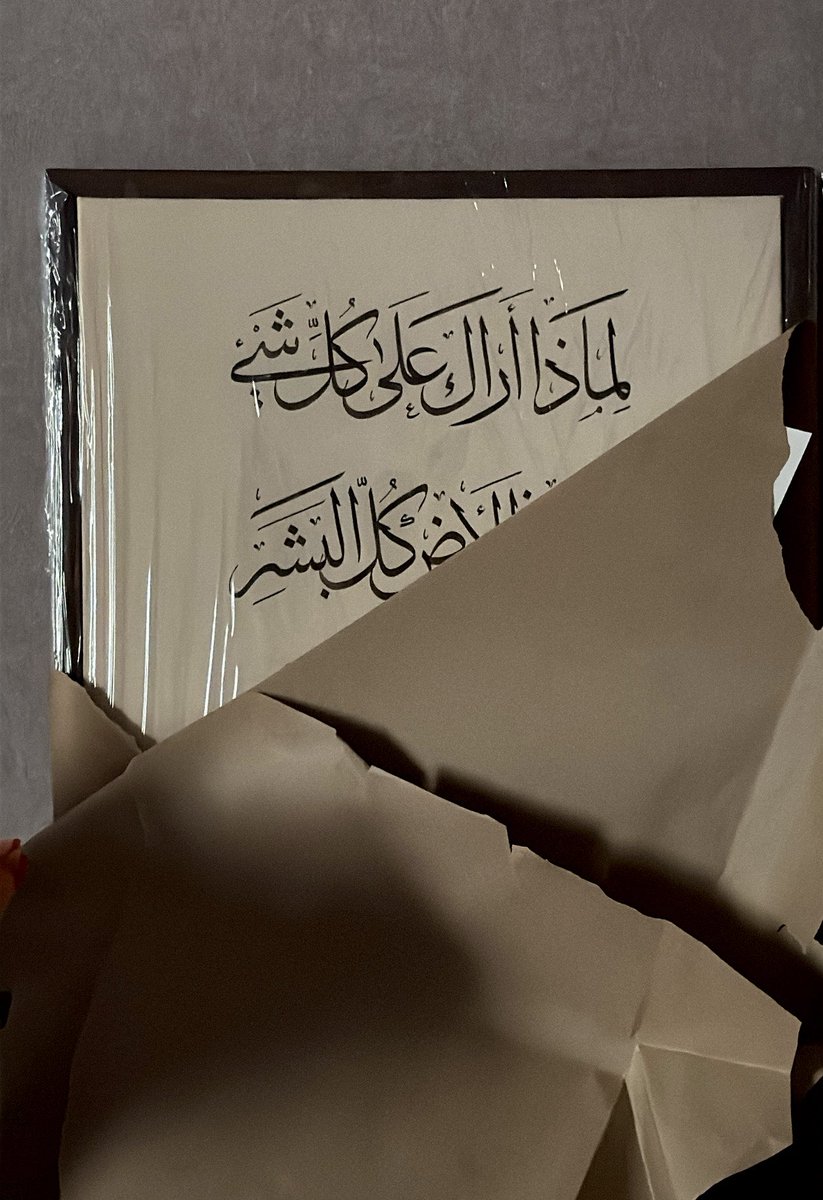 لِمَاذَا أَرَاكَ عَلَى كُلِّ شَيْءٍ
الأَرْضِ كُلُّ البَشَرِ